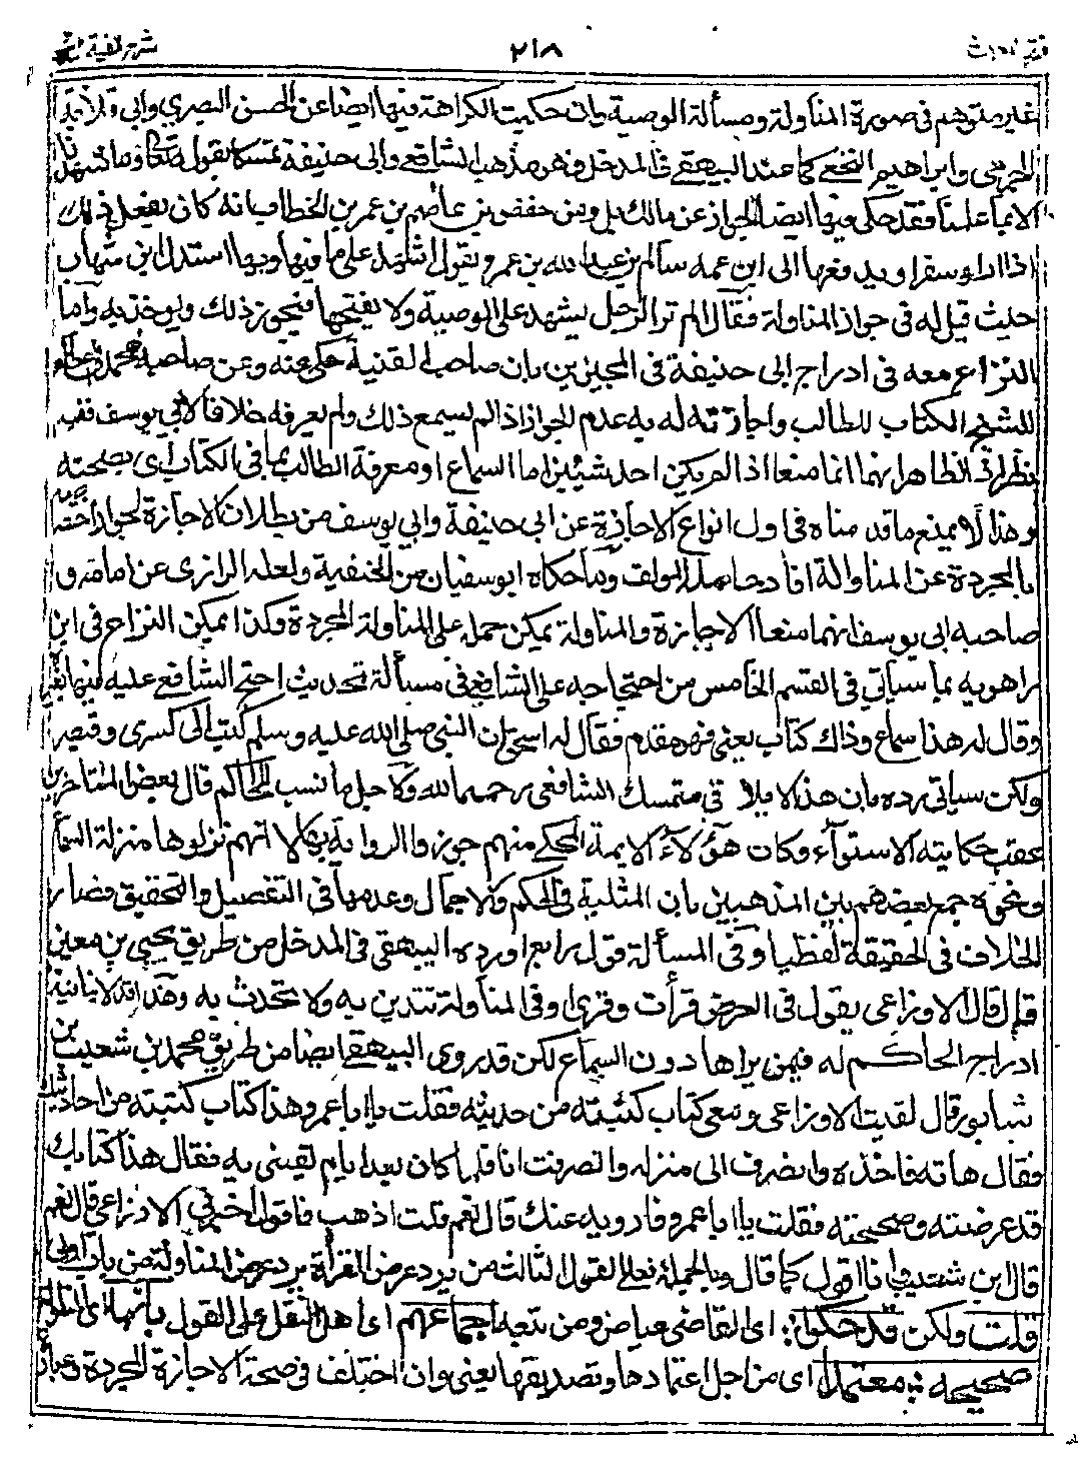 فتح المغيث ٢١٨ شرح الفية الحديث
غير متوهم في صورة المناولة ومسألة الوصية بان حكيت الكراهة فيها ايضا عن الحسن البصري وابي قلابة
الجرمي وابراهيم النخعي كما عند البيهقي في المدخل وهو مذهب الشافعي وابي حنيفة تمسكا بقوله تعالى وما شهدنا
الا بما علمنا فقد حكي فيها ايضا الجواز عن مالك بل ومن حفص بن عاصم بن عمر بن الخطاب انه كان يفعل ذلك
اذا اراد سفرا ويدفعها الى ابن عمه سالم بن عبد الله بن عمر ويقول اشهد على ما فيها وبها استدل ابن شهاب
حيث قيل له في جواز المناولة فقال الم تر الرجل يشهد على الوصية ولا يفتحها فيجوز ذلك ويوخذ به واما
النزاع معه في ادراج ابي حنيفة في المجيزين بان صاحب القنية حكى عنه وعن صاحبه محمد ان اعطاء
للشيخ الكتاب للطالب واجازته له به عدم الجواز اذا لم يسمع ذلك ولم يعرفه خلافا لابي يوسف ففيه
نظر اذ الظاهر انهما انما منعا اذا لم يكن احد شيئين اما السماع او معرفة الطالب بما في الكتاب اي بصحته
وهذا لا يمنع ما قدمناه في اول انواع الاجازة عن ابي حنيفة وابي يوسف من بطلان الاجازة لجواز اختصاصه
بالمجردة عن المناوالة افاد حاصله المولف وما حكاه ابو سفيان من الحنفية ولعله الرازى عن امامه و
صاحبه ابي يوسف انهما منعا الاجازة والمناولة يمكن حمله على المناولة المجردة وكذا يمكن النزاع في ابن
راهويه بما سياتي في القسم الخامس من احتجاجه على الشافعي في مسألة بحديث احتج الشافعي عليه فيها بغيره
وقال له هذا سماع وذاك كتاب يعني فهو مقدم فقال له اسحق ان النبي صلى الله عليه وسلم كتب الى كسرى وقيصر
ولكن سياتي رده بان هذا لا يلا في متمسك الشافعي رحمهما الله ولاجل ما نسب للحاكم قال بعض المتاخرين
عقب حكايته الاستواء وكان هؤلاء الايمة المحكي منهم جوزوا الرواية بها لا انهم نزلوها منزلة السماع
ونحوه جمع بعضهم بين المذهبين بان المثلية في الحكم والاجمال وعدمها في التفصيل والتحقيق فصار
الخلاف في الحقيقة لفظيا وفي المسألة قول رابع اورده البيهقي في المدخل من طريق يحيى بن معين
قال قال الاوزاعى يقول في العرض قرأت وقرئ وفي المناولة تتدين به ولا تتحدث به وهذا قد لا ينافيه
ادراج الحاكم له فيمن يراها دون السماع لكن قد روى البيهقي ايضا من طريق محمد بن شعيب بن
شابور قال لقيت الاوزاعى ومعي كتاب كتبته من حديثه فقلت يا ابا عمرو هذا كتاب كتبته من احاديثك
فقال هاته فاخذه وانصرف الى منزله وانصرفت انا فلما كان بعد ايام لقيني به فقال هذا كتابك
قد عرضته وصححته فقلت يا ابا عمرو فاروويه عنك قال نعم قلت اذهب فاقول اخبرني الاوزاعي قال نعم
قال ابن شعيب وانا اقول كما قال وبالجملة فعلى القول الثالث من يرد عرض القرأة يرد عرض المناولة من باب اولى
قلت ولكن قد حكوا: اي القاضي عياض ومن تبعه اجماعهم اي اهل النقل على القول بانها اي المناولة
صحيحه: معتمدا اي من اجل اعتمادها وتصديقها يعني وان اختلف في صحة الاجازة المجردة وعبارة